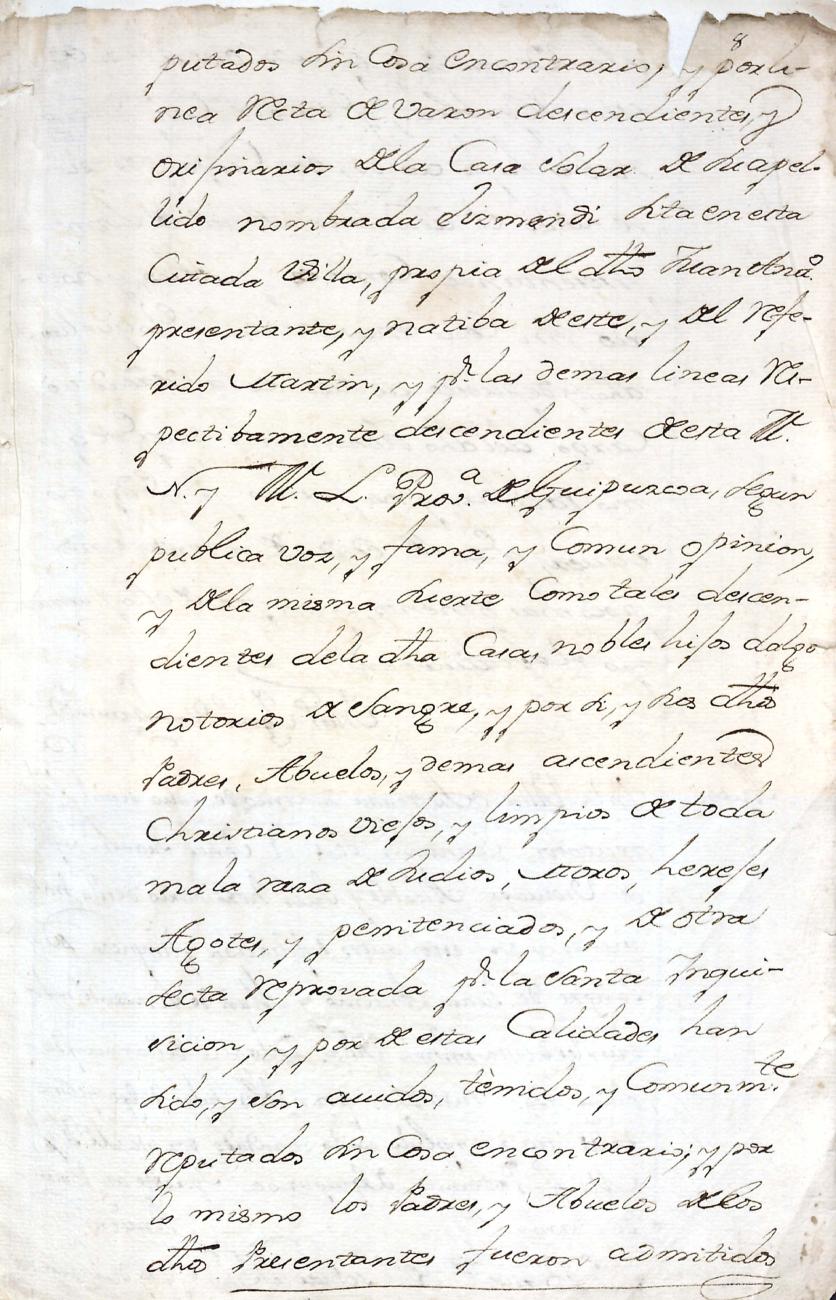 8
putados sin Cosa encontrario, y por li-
nea Recta de Varon descendientes, y
orijinarios de la Casa Solar de su apel-
lido nombrada sita en esta
Citada Villa, propia del dho Juan Anto.
presentante, y natiba de este, y del Refe-
rido Martin, y pr. las demas lineas Res-
pectibamente descendientes de esta M.
N. y M. L. Prova. de Guipuzcoa, segun
publica voz, y fama, y Comun opinion,
y de la misma suerte Como tales descen-
dientes de la dha Casa, nobles hijos dalgo
notorios de Sangre, y por si, y sus dhos
Padres, Abuelos, y demas ascendientes
Christianos viejos, y limpios de toda
mala raza de Judios, Moros, herejes
Agotes, y penitenciados, y de otra
secta reprovada pr. la Santa Inqui-
sicion, y por de estas Calidades han
sido, y son auidos, tènidos, y Comunmte.
reputados sin Cosa encontrario; y por
lo mismo los Padres, y Abuelos de los
dhos Presentantes fueron admitidos